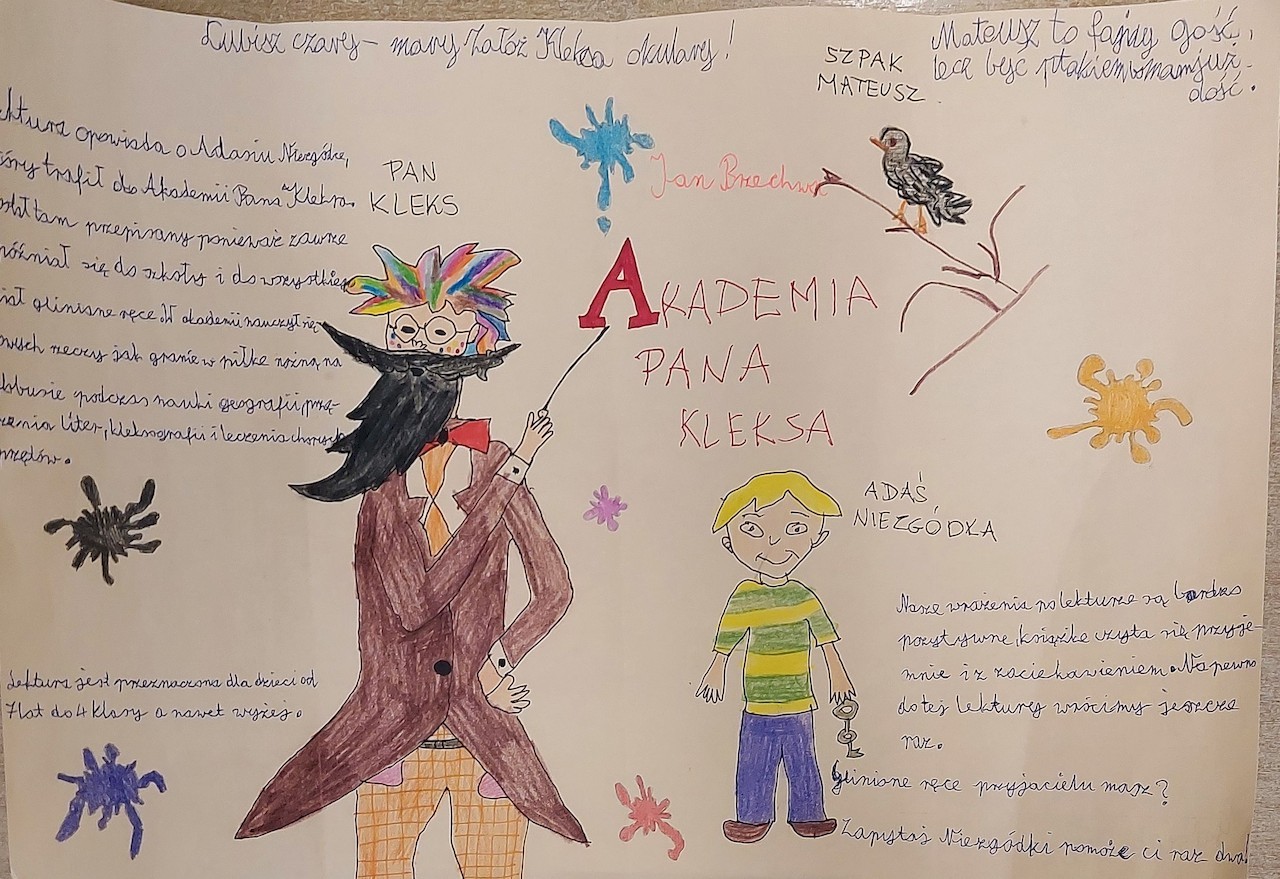 Lubisz czary – mary Załóż Kleksa okulary!
Mateusz to fajny gość,
lecz być ptakiem mam już
dość.
SZPAK
MATEUSZ
ektura opowiada o Adasiu Niezgódce,
óry trafił do Akademii Pana Kleksa.
tam przepisany ponieważ zawsze
óźniał się do szkoły i do wszystkiego
iał gliniane ręce. W akademii nauczył się
owych rzeczy jak granie w piłkę nożną na
lobusie podczas nauki geografii, przę-
zenia liter, kleksografii i leczenia chorych
przędów.
PAN
KLEKS
Jan Brzechwa
AKADEMIA
PANA
KLEKSA
ADAŚ
NIEZGÓDKA
Lektura jest przeznaczona dla dzieci od
7 lat do 4 klasy a nawet wyżej.
Nasze wrażenia po lekturze są bardzo
pozytywne, książkę czyta się przyje-
mnie i z zaciekawieniem. Na pewno
do tej lektury wrócimy jeszcze
raz.
Gliniane ręce przyjacielu masz?
Zapytaj Niezgódki pomoże ci raz dwa